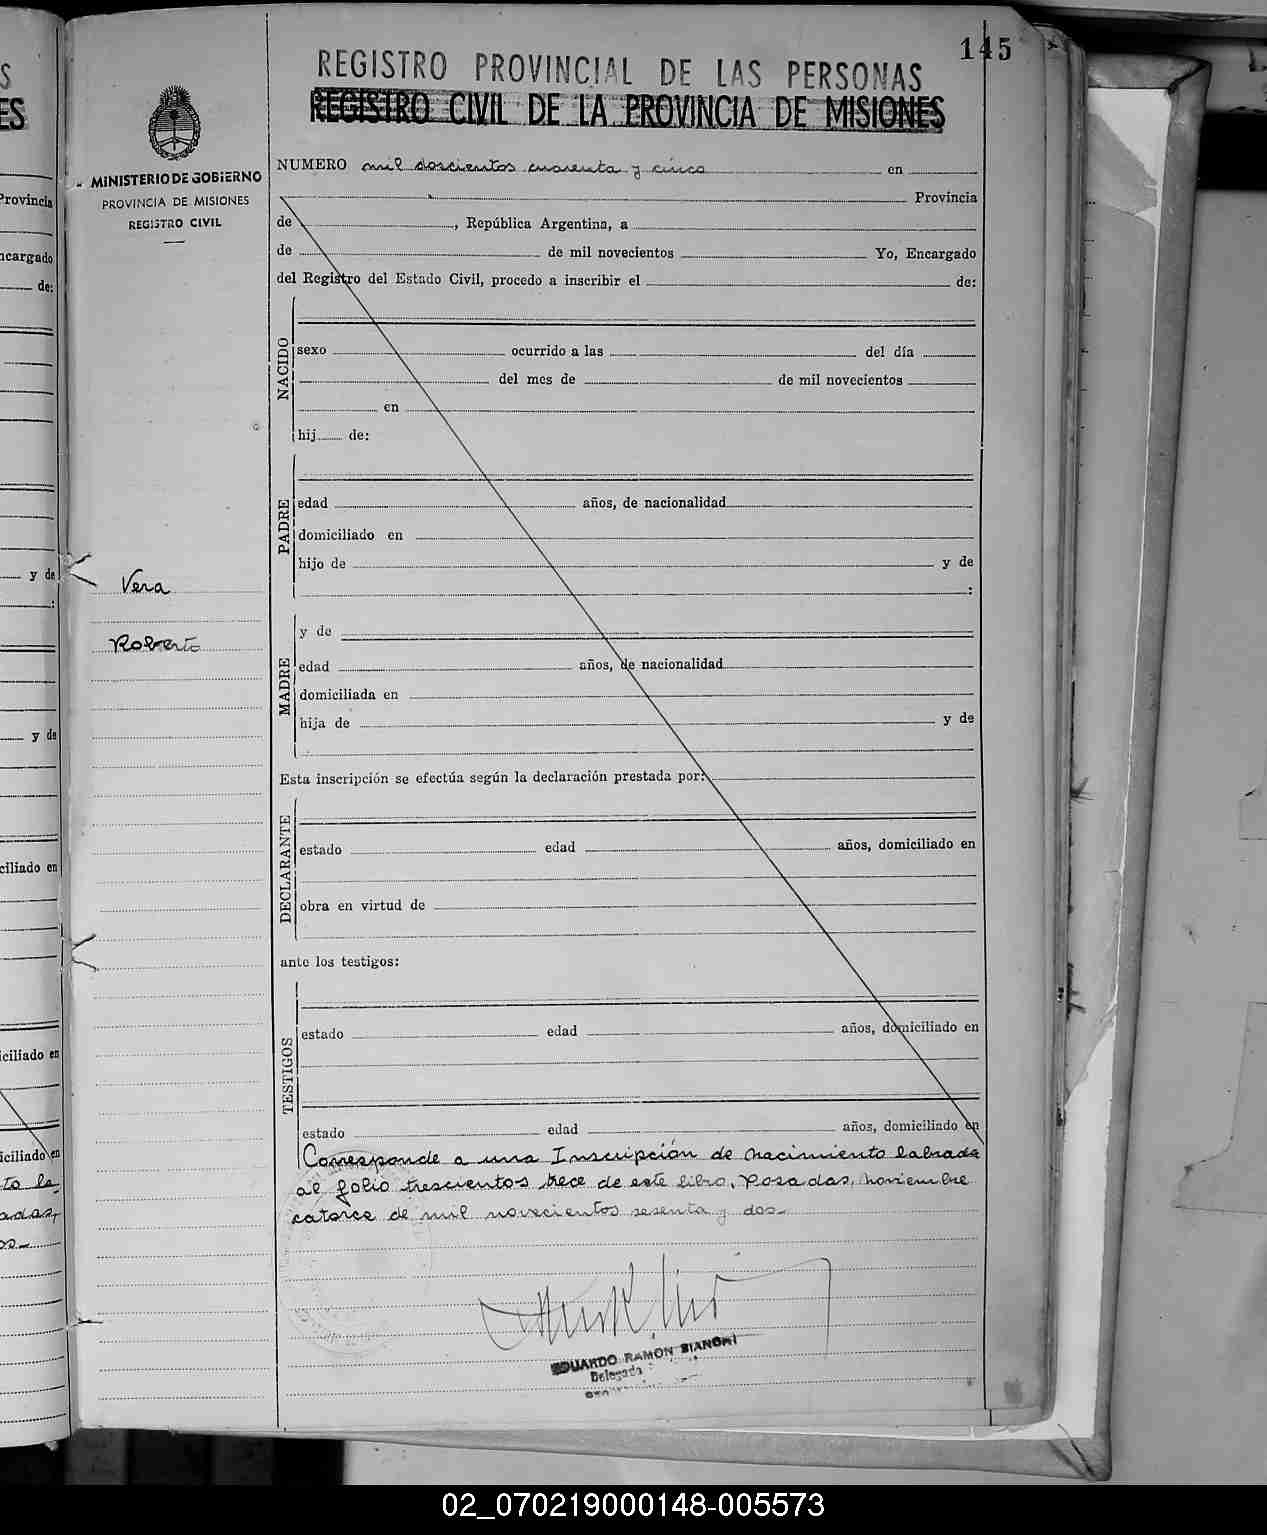 145
REGISTRO PROVINCIAL DE LAS PERSONAS
REGISTRO CIVIL DE LA PROVINCIA DE MISIONES
MINISTERIO DE GOBIERNO
PROVINCIA DE MISIONES
REGISTRO CIVIL
Vera
Roberto
NUMERO mil doscientos cuarenta y cinco en
Provincia
de , República Argentina, a
de de mil novecientos Yo, Encargado
del Registro del Estado Civil, procedo a inscribir el de:
NACIDO
sexo ocurrido a las del día
del mes de de mil novecientos
en
hij de:
PADRE
edad años, de nacionalidad
domiciliado en
hijo de y de
:
MADRE
y de
edad años, de nacionalidad
domiciliada en
hija de y de
Esta inscripción se efectúa según la declaración prestada por:
DECLARANTE
estado edad años, domiciliado en
obra en virtud de
ante los testigos:
TESTIGOS
estado edad años, domiciliado en
estado edad años, domiciliado en
Corresponde a una Inscripción de nacimiento labrada
al folio trescientos trece de este libro. Posadas, noviembre
catorce de mil novecientos sesenta y dos
EDUARDO RAMON BIANCHI
Delegado
02_070219000148-005573